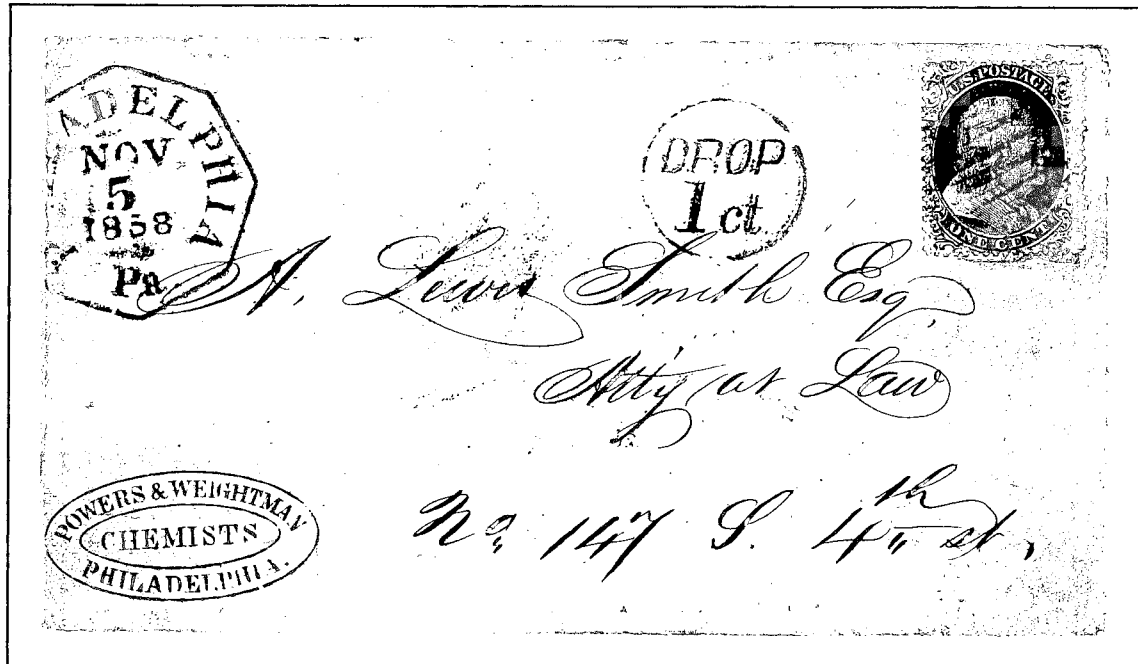 ADELPHIA
NOV
5
1858
Pa
DROP
1 ct
U.S. POSTAGE
ONE CENT
A. Lewis Smith Esq.
Atty at Law
No. 147 S. 4th st.
POWERS & WEIGHTMAN
CHEMISTS
PHILADELPHIA.